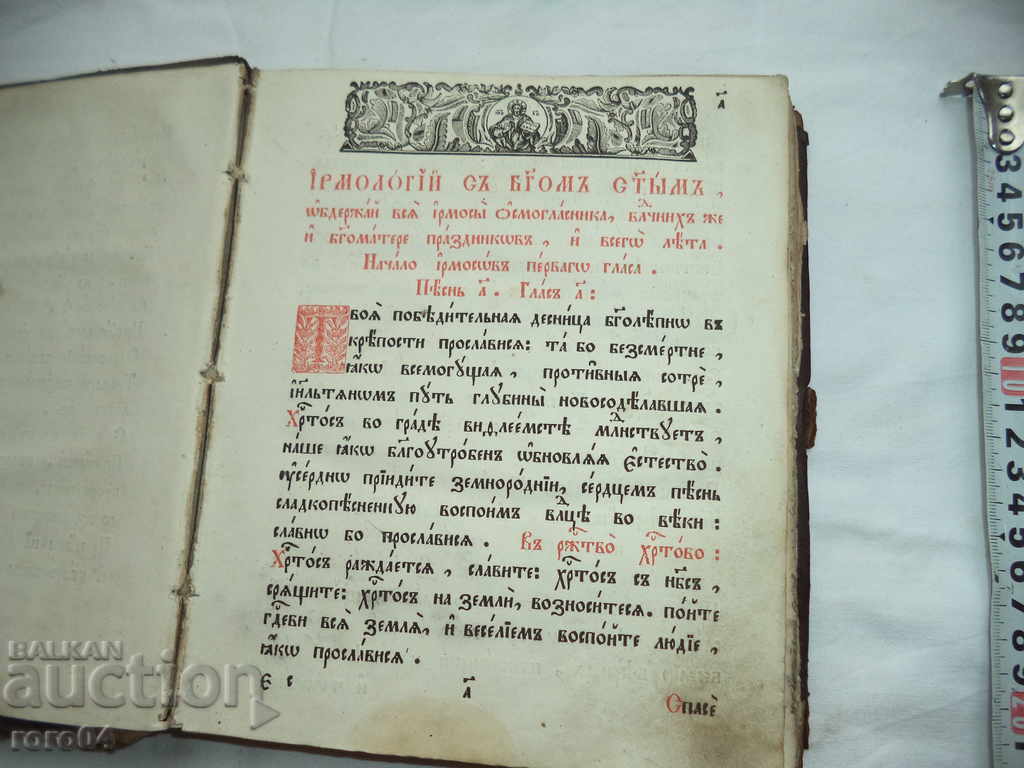 а҃
І҆рмоло́гїй съ бг҃омъ ст҃ы́мъ,
ѡ҆бдержа́й всѧ̀ і҆рмосы̀ ѻ҆смогла́сника, влⷣчнихъ же
и҆ бг҃ома́тере пра́здникѡвъ, и҆ всегѡ̀ лѣ́та.
Нача́ло і҆рмосѡ́въ пе́рвагѡ гла́са.
Пѣ́снь а҃. Гла́съ а҃:
Твоѧ̀ побѣди́тельнаѧ десни́ца бг҃олѣ́пнѡ въ
крѣ́пости просла́висѧ: та́ бо безсме́ртне,
ꙗ҆́кѡ всемогꙋ́щаѧ, проти́вныѧ сотрѐ,
і҆и҃льтѧнѡмъ пꙋ́ть глꙋбины̀ новосодѣ́лавшаѧ.
Хрⷭ҇то́съ во гра́дѣ виѳлее́мстѣ млⷣнствꙋетъ,
на́ше ꙗ҆́кѡ бл҃гоꙋтро́бенъ ѡ҆бновлѧ́ѧ є҆стество̀.
ᲂу҆се́рднѡ прїиди́те земноро́днїи, се́рдцемъ пѣ́снь
сладкопѣ́сненнꙋю воспои́мъ влⷣцѣ во вѣ́ки:
сла́внѡ бо просла́висѧ. Въ ржⷭ҇тво̀ хрⷭ҇то́во:
Хрⷭ҇то́съ ражда́етсѧ, сла́вите: хрⷭ҇то́съ съ нб҃съ,
срѧ́щите: хрⷭ҇то́съ на землѝ, возноси́тесѧ. по́йте
гдⷭ҇еви всѧ̀ землѧ̀, и҆ весе́лїемъ воспо́йте лю́дїе,
ꙗ҆́кѡ просла́висѧ.
є с а҃ Спасѐ
3 4 5 6 7 8 9 10 1 2 3 4 5 6 7 8 9 20 1
BALKAN
auction
roro04